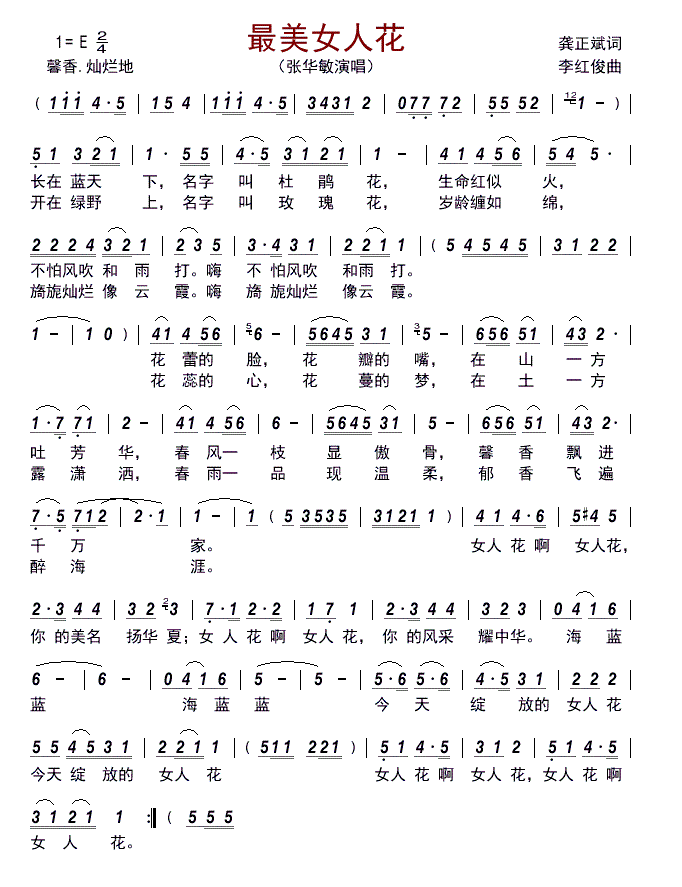 最美女人花
1= E 2/4
龚正斌词
馨香.灿烂地
（张华敏演唱）
李红俊曲
( 1 1 1 4 · 5 | 1 5 4 | 1 1 1 4 · 5 | 3 4 3 1 2 | 0 7 7 7 2 | 5 5 5 2 | 12 1 – )
5 1 3 2 1 | 1 · 5 5 | 4 · 5 3 1 2 1 | 1 – | 4 1 4 5 6 | 5 4 5 · |
长在 蓝天 下，名字 叫 杜 鹃 花， 生命红似 火，
开在 绿野 上，名字 叫 玫 瑰 花， 岁龄缠如 绵，
2 2 2 4 3 2 1 | 2 3 5 | 3 · 4 3 1 | 3 2 2 1 | ( 5 4 5 4 5 | 3 1 2 2 |
不怕风吹 和 雨 打。嗨 不 怕风吹 和雨 打。
旖旎灿烂 像 云 霞。嗨 旖 旎灿烂 像云 霞。
1 – | 1 0 ) | 4 1 4 5 6 | 5 6 – | 5 6 4 5 3 1 | 3 5 – | 6 5 6 5 1 | 4 3 2 · |
花 蕾的 脸， 花 瓣的 嘴， 在 山 一 方
花 蕊的 心， 花 蔓的 梦， 在 土 一 方
1 · 7 7 1 | 2 – | 4 1 4 5 6 | 6 – | 5 6 4 5 3 1 | 5 – | 6 5 6 5 1 | 4 3 2 · |
吐 芳 华， 春 风一 枝 显 傲 骨，馨 香 飘 进
露 潇 洒， 春 雨一 品 现 温 柔，郁 香 飞 遍
7 · 5 7 1 2 | 2 · 1 | 1 – | 1 ( 5 3 5 3 5 | 3 1 2 1 1 ) | 4 1 4 · 6 | 5 #4 5 |
千 万 家。 女人 花 啊 女人花，
醉 海 涯。
2 · 3 4 4 | 3 2 2 3 | 7 · 1 2 · 2 | 1 7 1 | 2 · 3 4 4 | 3 1 2 | 0 4 1 6 |
你 的美名 扬华 夏；女 人 花 啊 女人 花， 你 的风采 耀中华。 海 蓝
6 – | 6 – | 0 4 1 6 | 5 – | 5 – | 5 · 6 5 · 6 | 4 · 5 3 1 | 2 2 1 |
蓝 海 蓝 蓝 今 天 绽 放的 女人 花
5 5 4 5 3 1 | 2 2 1 1 | ( 5 1 1 2 2 1 ) | 5 1 4 · 5 | 3 1 2 | 5 1 4 · 5 |
今天 绽 放的 女人 花 女人 花 啊 女人 花，女人 花 啊
3 1 2 1 1 :‖ ( 5 5 5 5
女 人 花。